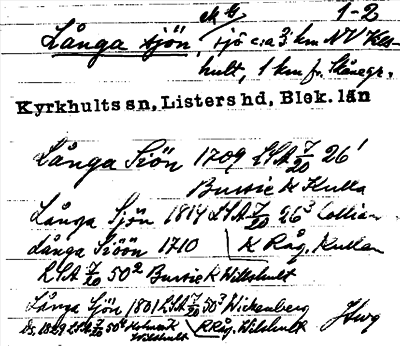 ek b/ 1-2
Långa sjön, sjö c:a 3 km NV Kls-
hult, 1 km fr. Skånegr.
Kyrkhults sn, Listers hd, Blek. län
Långa Siön 1709 LSA 7/20 26¹
Bursie k Kulla
Långa Sjön 1814 LSA 7/20 26³ Collian
Långa Siöön 1710 k Råg. Kullan
LSA 7/20 50² Bursie k Willshult
Långa Sjön 1801 LSA 7/20 50³ Wickenberg
Ds. 1829 LSA 7/20 50⁶ k Råg. Wilshult
Wilshult